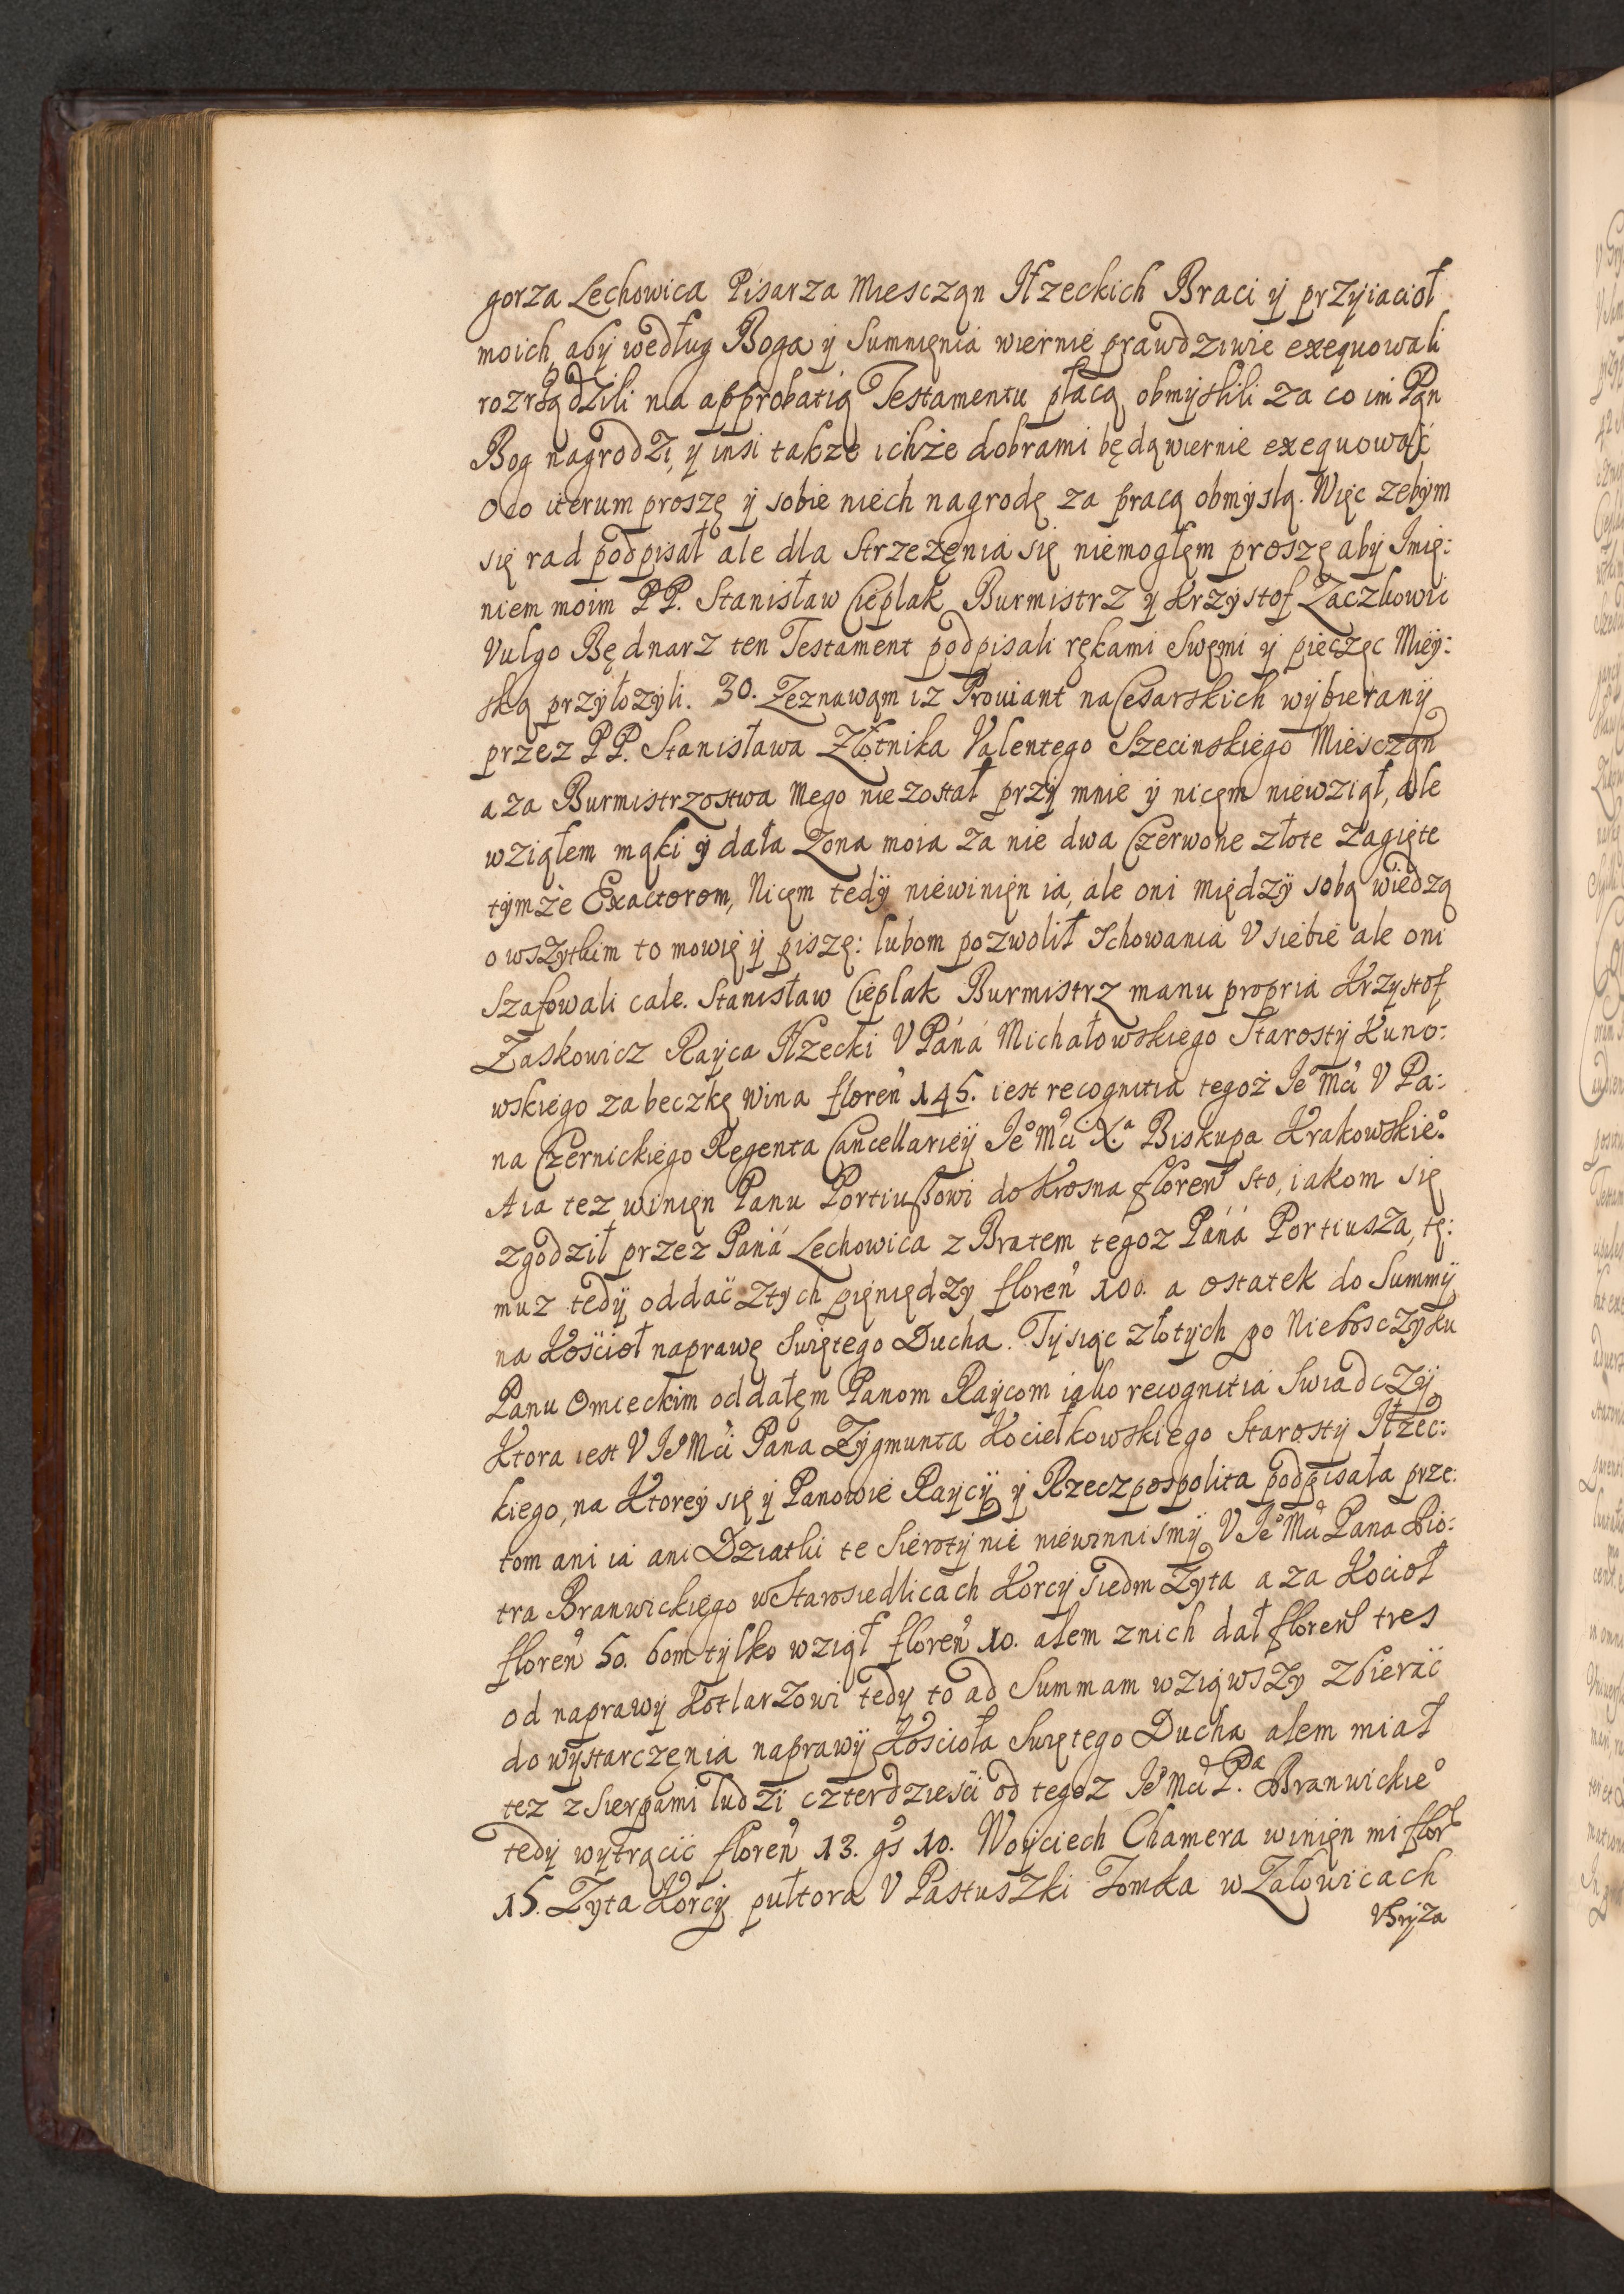 gorza Lechowica Pisarza Miesczan Iłzeckich Braci ÿ przyiacioł
moich, abÿ według Boga ÿ Sumnięnia wiernie prawdziwie exequowali
rozrządzili na approbatią Testamentu płacą obmyslili za co im Pan
Bog nagrodzi, ÿ insi takze ichże dobrami będą wiernie exequować
Oco iterum proszę ÿ sobie niech nagrodę za pracą obmyslą. Więc zebÿm
się rad podpisał ale dla Strzezęnia się niemogłęm proszę abÿ Imię:
niem moim PP. Stanisław Cieplak Burmistrz ÿ Krzÿstof Zaczkowic
Vulgo Będnarz ten Testament podpisali rękami Swęmi ÿ pieczęc Mieÿ:
ską przyłozÿli. 30. Zeznawąm iz Prouiant na Cesarskich wÿbieranÿ
przez PP. Stanisława Złotnika Valentego Szecinskiego Miesczan
a za Burmistrzostwa mego nie został przÿ mnie ÿ nicęm niewziął, ale
wziąłem mąki ÿ dała Zona moia za nie dwa Czerwone złote zagięte
tÿmże Exactorom, Nicęm tedÿ niewinięn ia, ale oni międzÿ sobą wiedzą
o wszytkim to mowię ÿ piszę: lubom pozwolił Schowania V siebie ale oni
Szafowali cale. Stanisław Cieplak Burmistrz manu propria Krzÿstof
Zaskowicz Raÿca Iłzecki V Páná Michałowskiego Starostÿ Kuno:
wskiego za beczkę wina floren 145. iest recognitia tegoż Ieo Mci V Pa:
na Czernickiego Regenta Cancellarieÿ Ieo Mci X.a Biskupa Krakowskieo
A ia tez winięn Panu Portiuszowi do Krosna floren sto, iakom się
zgodził przez Páná Lechowica z Bratem tegoz Páná Portiusza, tę:
muz tedÿ oddać ztÿch pięniędzy floren 100. a ostatek do Summÿ
na Kościoł naprawę Swiętego Ducha. Tÿsiąc złotÿch po Nieboszczÿku
Panu Omieckim oddałęm Panom Raÿcom iako recognitia Swiadczÿ
Ktora iest V Ieo Mci Pana Zÿgmunta Kociełkowskiego Starostÿ Iłzec:
kiego, na Ktoreÿ się ÿ Panowie Raÿcÿ ÿ Rzeczpospolita podpisała prze:
tom ani ia ani Dziatki te Sierotÿ nie niewinni smÿ V Ieo Mci Pana Pio:
tra Branwickiego w Starosiedlicach Korcÿ siedm Zÿta a za Kocioł
floren 50. bom tÿlko wziął floren 10. alem z nich dał floren tres
od naprawÿ Kotlarzowi tedÿ to ad Summam wziąwszÿ zbierać
do wÿstarczęnia naprawÿ Kościoła Swiętego Ducha alem miał
tez z Sierpami ludzi czterdziesci od tegoz Ieo Mci P.a Branwickieo
tedÿ wÿtrącić floren 13. gs 10. Woÿciech Chamera winięn mi flor
15. Zÿta Korcÿ pułtora V Pastuszki Tomka w Załowicach